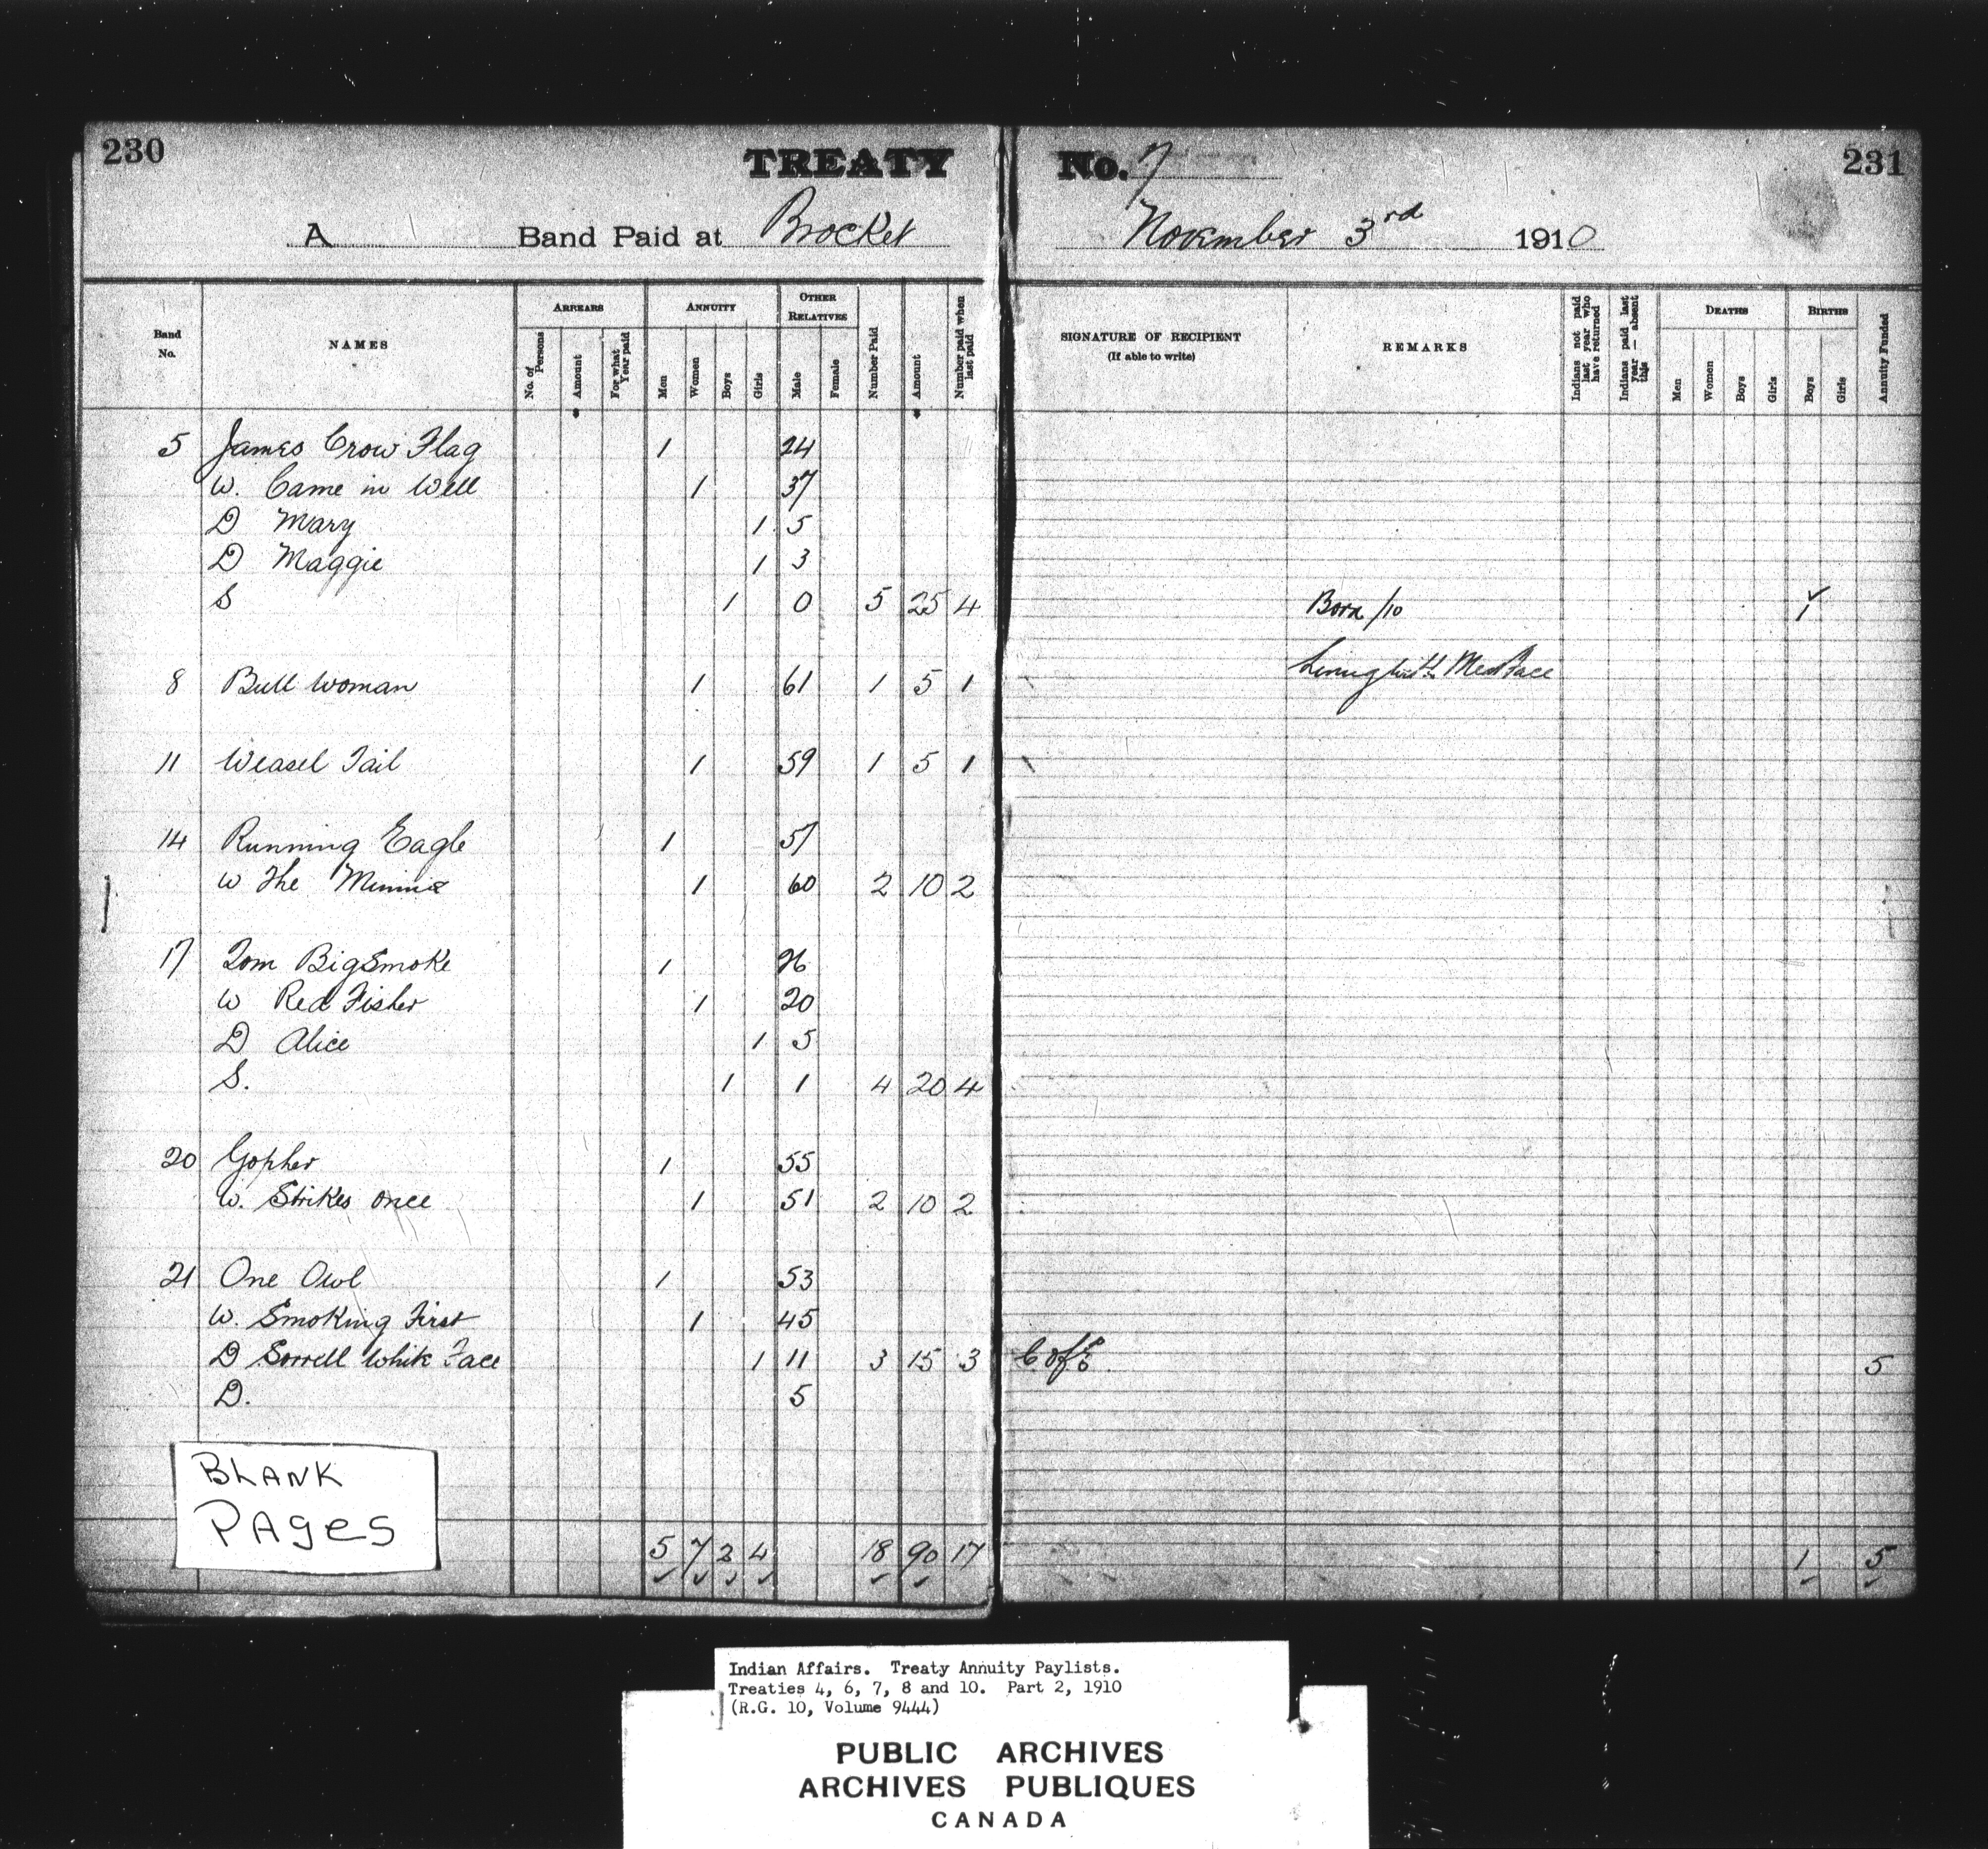 230
TREATY No. 7
231
A Band Paid at Brocket November 3rd 1910
Band No.
NAMES
ARREARS
No. of Persons
Amount
For what Year paid
ANNUITY
Men
Women
Boys
Girls
OTHER RELATIVES
Male
Female
Number Paid
Amount
Number paid when last paid
SIGNATURE OF RECIPIENT
(If able to write)
REMARKS
Indians not paid last year who have returned
Indians paid last year — absent this
DEATHS
Men
Women
Boys
Girls
BIRTHS
Boys
Girls
Annuity Funded
5 James Crow Flag 1 24
W. Came in Well 1 37
D Mary 1 5
D Maggie 1 3
S 1 0 5 25 4 Born /10 1
8 Bull Woman 1 61 1 5 1
11 Weasel Tail 1 59 1 5 1
14 Running Eagle 1 57
W The Minnie 1 60 2 10 2
17 Tom Big Smoke 1 26
W Red Fisher 1 20
D Alice 1 5
S. 1 1 4 20 4
20 Gopher 1 55
W. Strikes once 1 51 2 10 2
21 One Owl 1 53
W. Smoking First 1 45
D Sorrell White Face 1 11 3 15 3 5
D. 5
BLANK
PAges
5 7 2 4 18 90 17 1 5
Indian Affairs. Treaty Annuity Paylists.
Treaties 4, 6, 7, 8 and 10. Part 2, 1910
(R.G. 10, Volume 9444)
PUBLIC ARCHIVES
ARCHIVES PUBLIQUES
CANADA